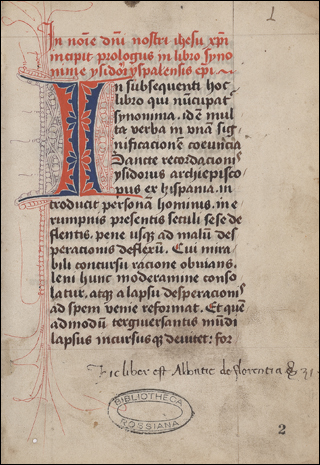 1
In noīe dnī nostri ihesu xpī
incipit prologus in libro syno
nime ysidori yspalensis epī.
In subsequenti hoc
libro qui nūcupat
synonima. idē mul
ta verba in vnā sig
nificationē coeuncia
Sancte recordacionis
ysidorus archiepisco
pus ex hispania. in
troducit personā hominus. in e
rumpnis presentis seculi sese de
flentis. pene usq; ad malū des
peracionis deflexū. Cui mira
bili concursu racione obuians.
leni hunc moderamine conso
latur. atq; a lapsu desperacionis
ad spem venie reformat. Et quē
admodū tergiuersantis mūdi
lapsus incursusq; deuitet; for
liber est Abbatie de florentia 31
BIBLIOTHECA
ROSSIANA
2